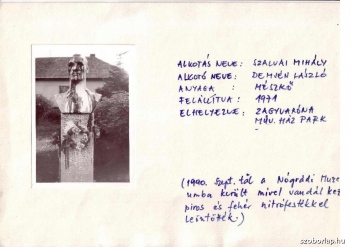 ALKOTÁS NEVE: SZALVAI MIHÁLY
ALKOTÓ NEVE: DEMJÉN LÁSZLÓ
ANYAGA: MÉSZKŐ
FELÁLLÍTVA: 1971
ELHELYEZVE: ZAGYVARÓNA
MŰV. HÁZ PARK
(1990. szept. től a Nógrádi Muze
umba került mivel vandál kez
piros és fehér nitrofestékkel
leöntötték.)
www.szoborlap.hu